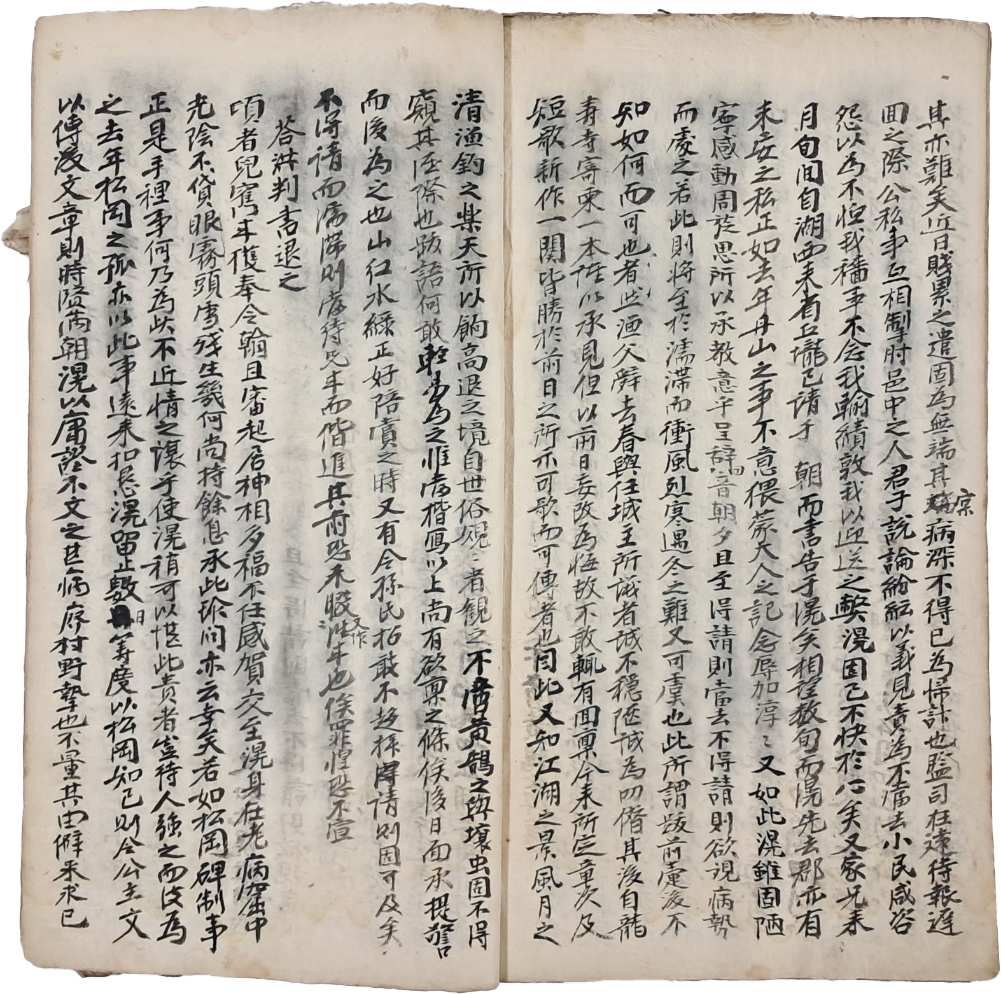 其亦難矣近日賤累之遣固為無端其實病深不得已為歸計也監司在遠待報遲
回之際公私事互相制肘邑中之人君子說論紛紜以義見責為不當去小民咸咨
怨以為不恤我穡事不念我輸績敦我以迎送之弊滉固已不快於心矣又家兄來
月旬間自湖西來省丘壠已請于朝而書告于滉矣相望數旬而滉先去郡亦有
未安之私正如去年丹山之事不意偎蒙大人之記念辱加諄〻又如此滉雖固陋
寧感動周旋思所以承教意乎呈辭回音朝夕且至得請則當去不得請則欲觀病勢
而處之若此則將至於濡滯而衝風烈寒遇冬之難又可虞也此所謂跋前疐後不
知如何而可也者些漁父辭去春與任城主所議者誠不穩陋誠為四僭其後自龍
壽寺寄東一本謹以承見但以前日妄改為悔故不敢輒有回稟今來所定章次及
短歌新作一闋皆勝於前日之所示可歌而可傳者也因此又知江湖之景風月之
清漁釣之樂天所以餉高退之境自世俗規〻者觀之不啻黃鵠之與壤虫固不得
窺其涯際也跋語何敢輕易為之惟當楷寫以上尚有欲稟之條俟後日面承提警
而後為之也山紅水綠正好陪賞之時又有令孫氏招敢不趍拜得請則固可及矣
不得請而濡滯則當待兄來而偕進其前恐未暇又作浩乎也俟罪惶恐不宣
答洪判書退之
頃者兒寯來獲奉令翰且審起居神相多福不任感賀交至滉身在老病窟中
光陰不貸眼霧頭雪殘生幾何尚持餘息承此珍問亦云幸矣若如松岡碑制事
正是手裡事何乃為此不近情之讓于使滉稍可以堪此責者豈待人強之而後為
之去年松岡之孤亦以此事遠來扣懇滉留止數日籌度以松岡知己則令公主文
以傳後文章則時賢滿朝滉以庸謬不文之甚病廢村野摯也不量其由僻來求已